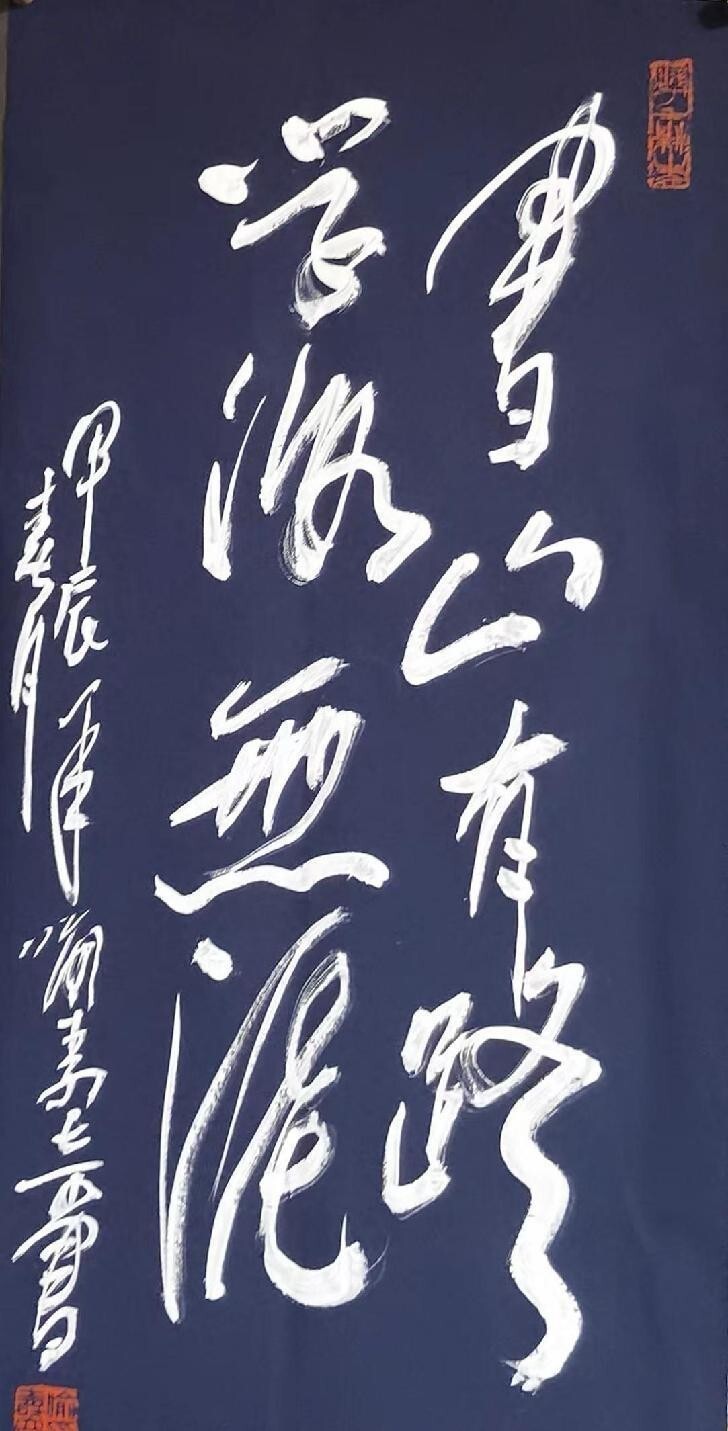 書山有路
学海無涯
甲辰年
春月
書